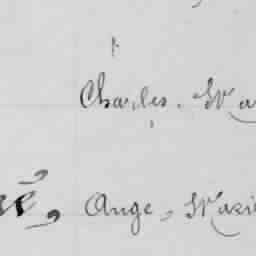 Charles. Wa
né, Ange, Marie